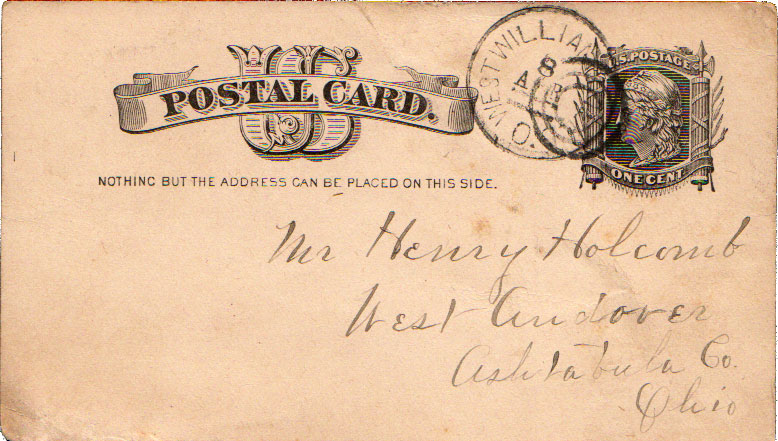 US
POSTAL CARD.
WEST WILLIAM
8
O.
U.S. POSTAGE
ONE CENT
NOTHING BUT THE ADDRESS CAN BE PLACED ON THIS SIDE.
Mr Henry Holcomb
West Andover
Ashtabula Co.
Ohio